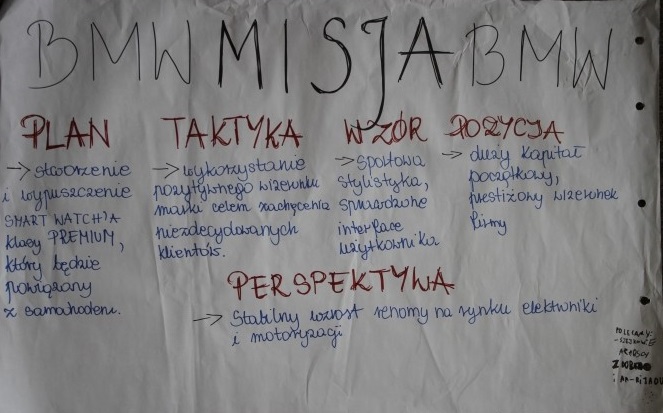 BMW MISJA BMW
PLAN
→ stworzenie
i wypuszczenie
SMART WATCH'A
klasy PREMIUM,
który będzie
powiązany
z samochodem.
TAKTYKA
→ wykorzystanie
pozytywnego wizerunku
marki celem zachęcenia
niezdecydowanych
klientów.
WZÓR
→ Sportowa
stylistyka,
sprawdzone
interface
użytkownika
POZYCJA
→ duży kapitał
początkowy,
prestiżowy wizerunek
firmy
PERSPEKTYWA
→ Stabilny wzrost renomy na rynku elektroniki
i motoryzacji
POLECAMY: